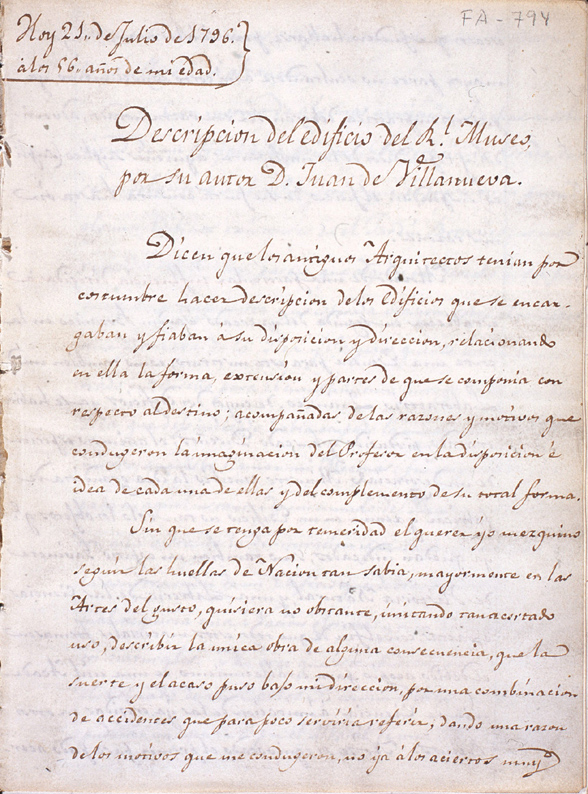 FA-794
Hoy 21, de Julio de 1796.
a los 56. años de mi edad.
Descripcion del edificio del R.l Museo,
por su autor D.n Juan de Villanueva.
Dicen que los antiguos Arquitectos tenian por
costumbre hacer descripcion de los Edificios que se encar-
gaban y fiaban a su disposicion y direccion, relacionando
en ella la forma, extension y partes de que se componia con
respecto al destino; acompañadas de las razones y motivos que
condugeron la imaginacion del Profesor en la disposicion è
idea de cada una de ellas y del complemento de su total forma.
Sin que se tenga por temeridad el querer yo mezquino
seguir las huellas de Nacion tan sabia, mayormente en las
Artes del gusto, quisiera no obstante, imitando tan acertado
uso, describir la unica obra de alguna consecuencia, que la
suerte y el acaso puso bajo mi direccion, por una combinacion
de accidentes que para poco serviria referir; dando una razon
de los motivos que me condugeron, no ya à los aciertos muy